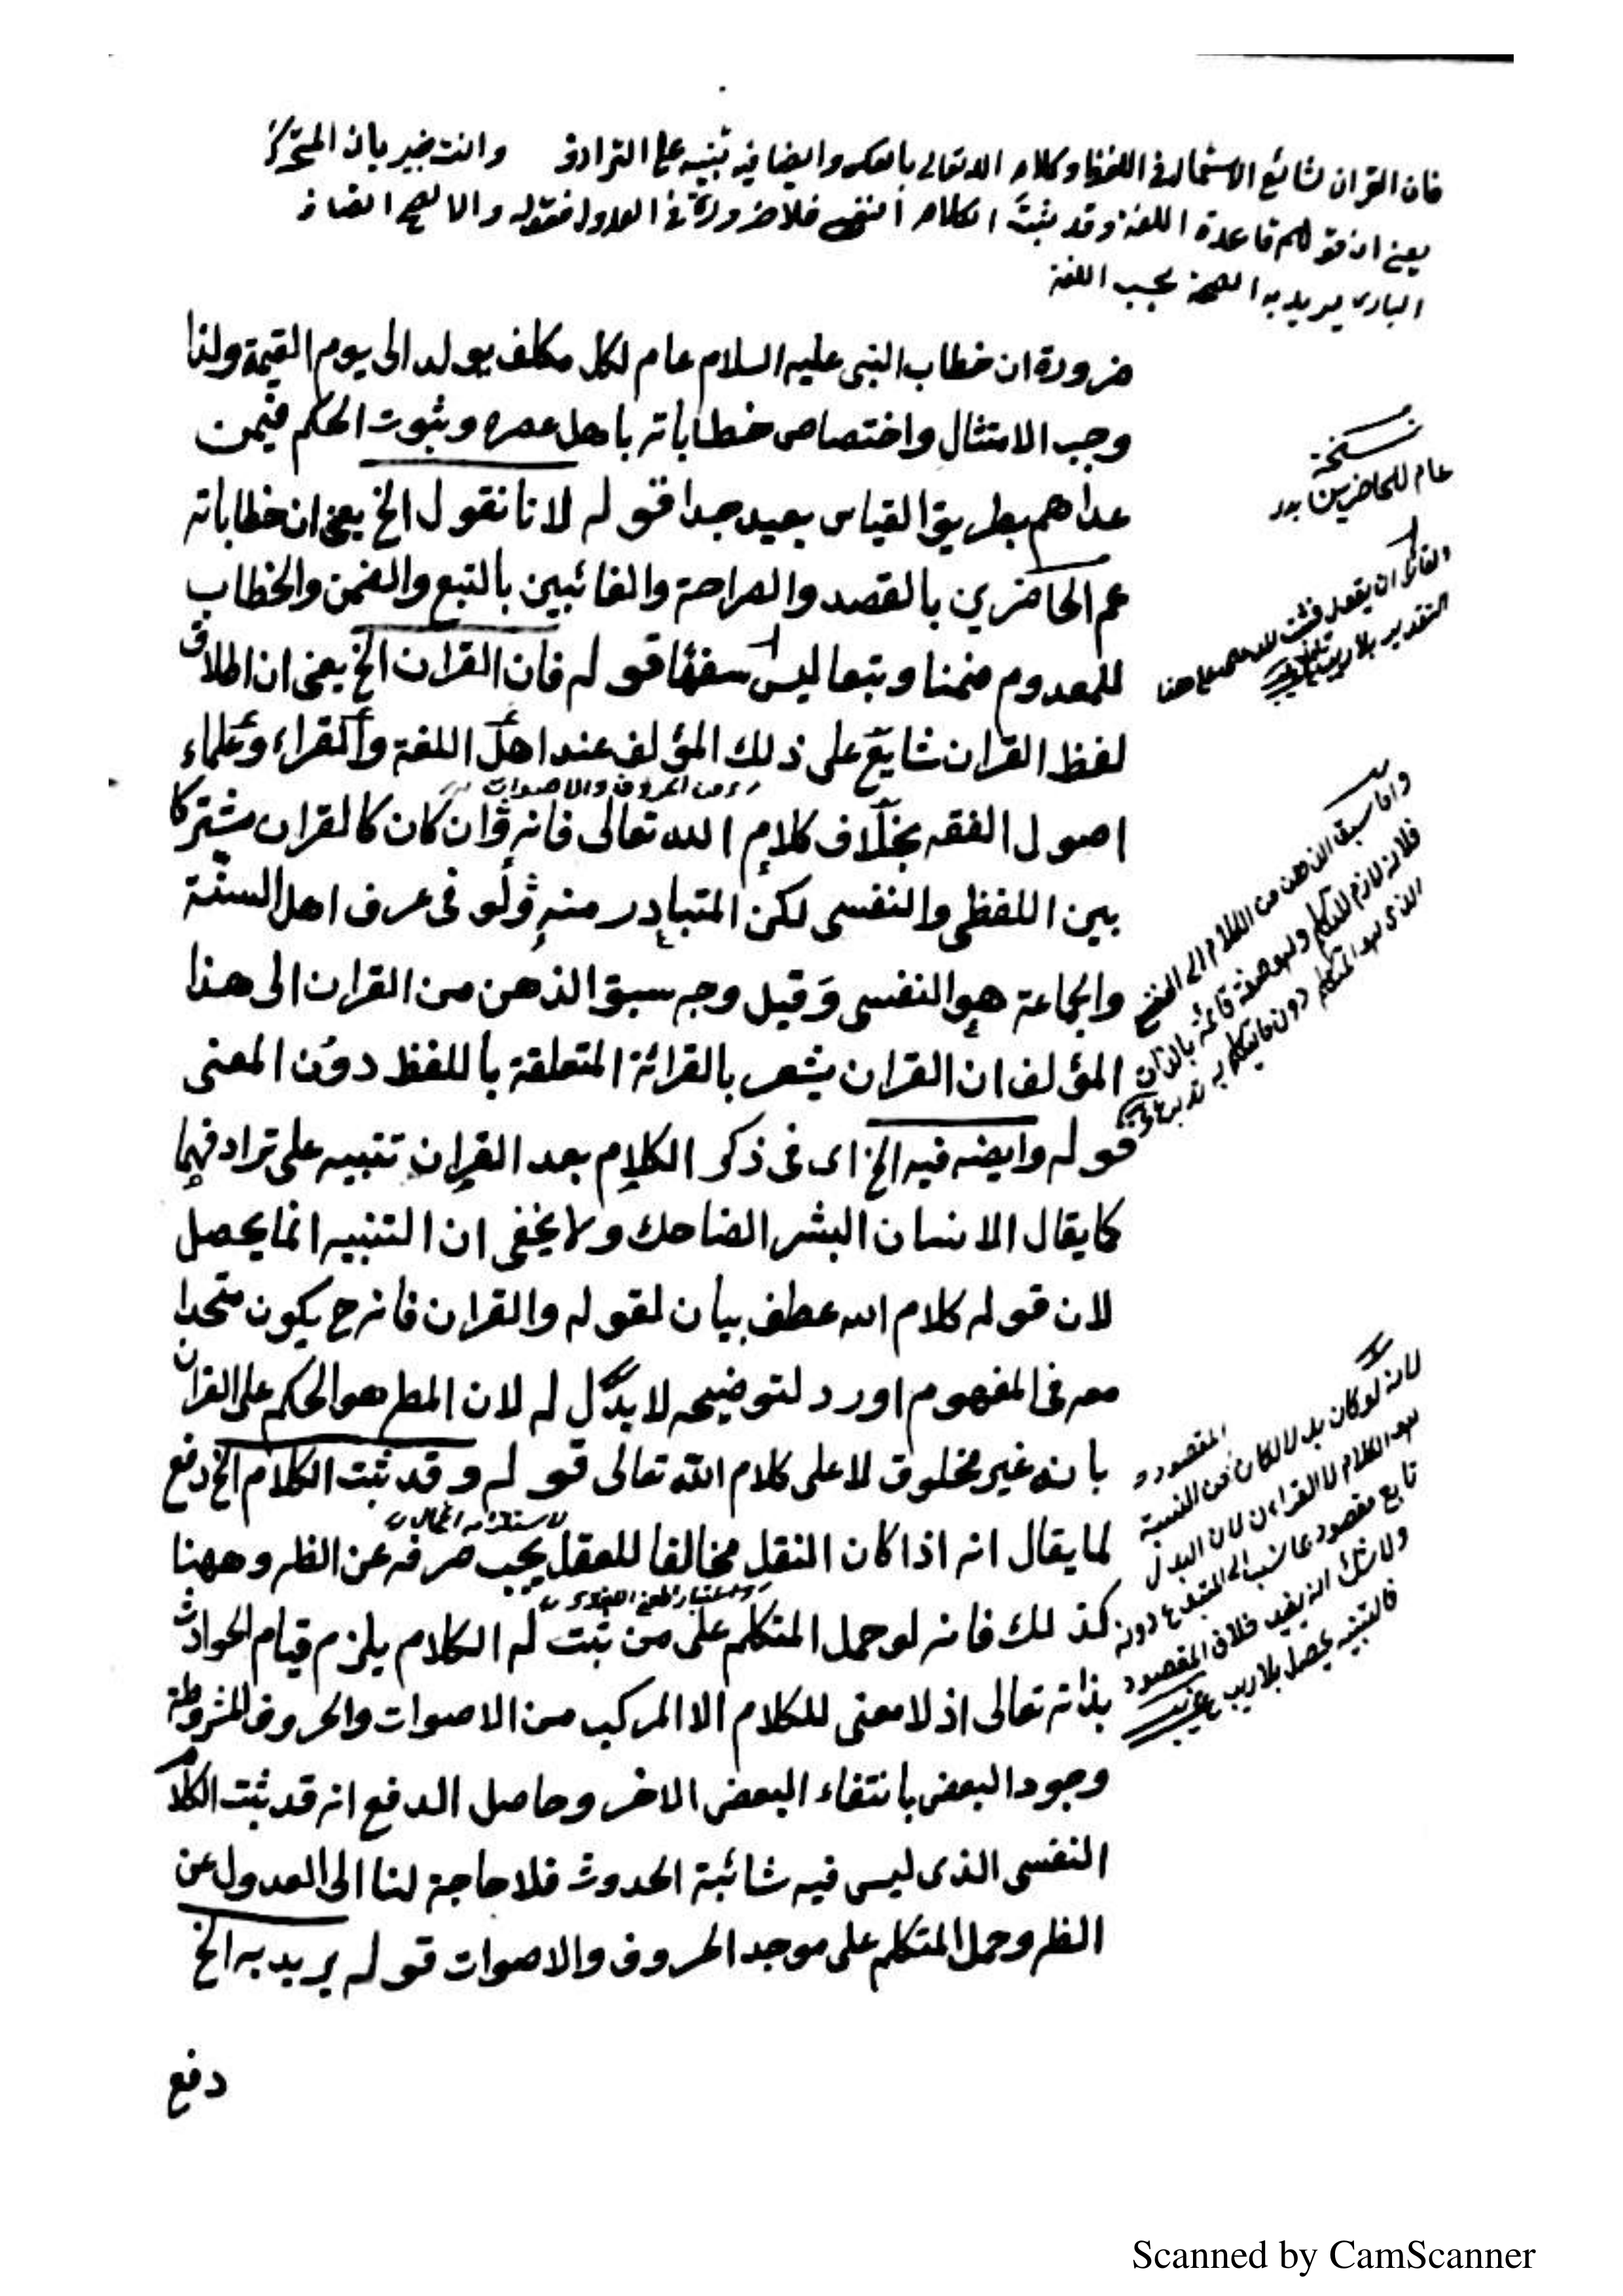 فان القران شائع الاستعمال فى اللفظ وكلام الله تعالى بالعكس وايضا فيه تنبيه على الترادف وانت خبير بان المتحرك
يعنى ان قولهم قاعدة اللغة وقد ثبت الكلام النفسى فلا ضرورة فى العدول فقوله والا لصح اتصاف
البارى يريد به الصحة بحسب اللغة
ضرورة ان خطاب النبى عليه السلام عام لكل مكلف يولد الى يوم القيمة ولذا
وجب الامتثال واختصاص خطاباته باهل عصره وثبوت الحكم فيمن
عداهم بطريق القياس بعيد جدا قوله لانا نقول الخ يعنى ان خطاباته
عم الحاضرين بالقصد والصراحة والغائبين بالتبع والضمن والخطاب
للمعدوم ضمنا وتبعا ليس سفها قوله فان القران الخ يعنى ان اطلاق
لفظ القران شايع على ذلك المؤلف عند اهل اللغة والقراء وعلماء
من الحروف والاصوات
اصول الفقه بخلاف كلام الله تعالى فانه وان كان كالقران مشتركا
بين اللفظى والنفسى لكن المتبادر منه ولو فى عرف اهل السنة
والجاعة هو النفسى وقيل وجه سبق الذهن من القران الى هذا
المؤلف ان القران يشعر بالقرائة المتعلقة باللفظ دون المعنى
قوله وايضه فيه الخ اى فى ذكر الكلام بعد القران تنبيه على ترادفهما
كما يقال الانسان البشر الضاحك ولا يخفى ان التنبيه انما يحصل
لان قوله كلام الله عطف بيان لقوله والقران فانه ح يكون متحدا
معه فى المفهوم اورد لتوضيحه لا بدل له لان المط هو الحكم على القران
بانه غير مخلوق لا على كلام الله تعالى قوله وقد ثبت الكلام الخ دفع
لاستلزامه المحال
لما يقال انه اذا كان النقل مخالفا للعقل يجب صرفه عن الظ وههنا
كذلك فانه لو حمل المتكلم على من ثبت له الكلام يلزم قيام الحوادث
بذاته تعالى اذ لا معنى للكلام الا المركب من الاصوات والحروف المشروطة
وجود البعض بانتفاء البعض الاخر وحاصل الدفع انه قد ثبت الكلام
النفسى الذى ليس فيه شائبة الحدوث فلا حاجة لنا الى العدول عن
الظ وحمل المتكلم على موجد الحروف والاصوات قوله يريد به الخ
دفع
نسخة
عام للحاضرين
واما سبق الذهن من الكلام الى النفسى
فلانه لازم للتكلم وهو صفة قائمة بالذات
الذى هو المتكلم دون ما يتكلم به
لانه لو كان بدلا لكان المقصود
هو الكلام لا القران لان البدل
تابع مقصود بما نسب الى المتبوع دونه
ولا شك انه يفيد خلاف المقصود
فالتنبيه يحصل بلا ريب
Scanned by CamScanner